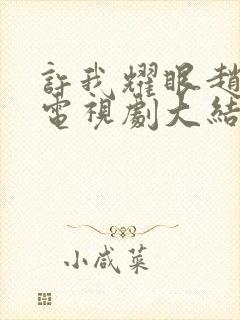 許我耀眼趙
電視劇大結
小咸菜